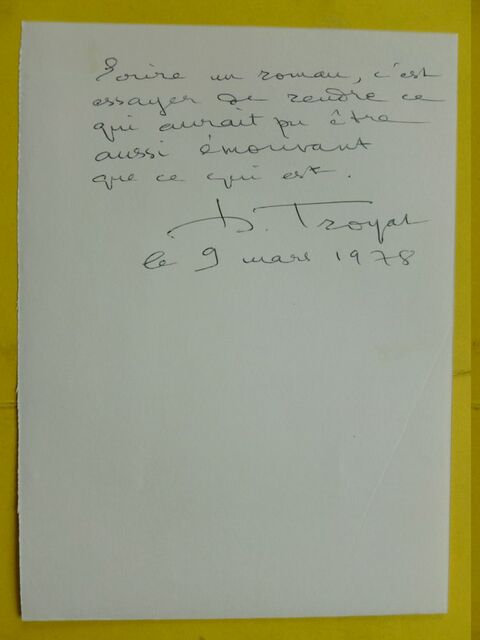 Ecrire un roman, c'est
essayer de rendre ce
qui aurait pu être
aussi émouvant
que ce qui est.
H. Troyat
le 9 mars 1978